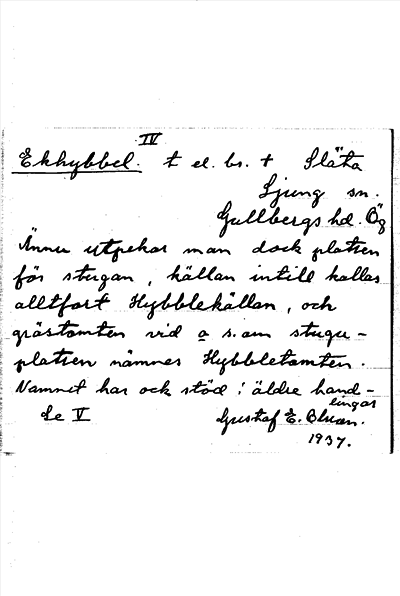 IV
Ekhybbel. t el. bs. + Släta
Ljung sn.
Gullbergs hd. Ög
Ännu utpekar man dock platsen
för stugan, källan intill kallas
alltfort Hybblekällan, och
gröstomten vid a s. om stugu-
platsen nämnes Hybbletomten.
Namnet har ock stöd i äldre hand-
lingar
Se V Gustaf E.
1937.